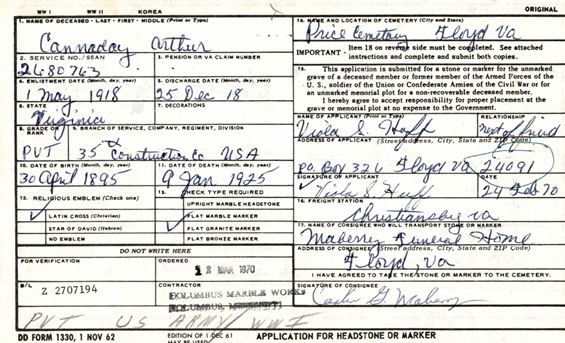 WW I WW II KOREA ORIGINAL
1. NAME OF DECEASED - LAST - FIRST - MIDDLE (Print or Type)
Cannaday Arthur
2. SERVICE NO./SSAN
2680743
3. PENSION OR VA CLAIM NUMBER
4. ENLISTMENT DATE (Month, day, year)
1 May 1918
5. DISCHARGE DATE (Month, day, year)
25 Dec 18
6. STATE
Virginia
7. DECORATIONS
8. GRADE OR RANK
PVT
9. BRANCH OF SERVICE, COMPANY, REGIMENT, DIVISION
35 Construction Co USA
10. DATE OF BIRTH (Month, day, year)
30 April 1895
11. DATE OF DEATH (Month, day, year)
9 Jan 1925
12. RELIGIOUS EMBLEM (Check one)
LATIN CROSS (Christian)
STAR OF DAVID (Hebrew)
NO EMBLEM
13. CHECK TYPE REQUIRED
UPRIGHT MARBLE HEADSTONE
FLAT MARBLE MARKER
FLAT GRANITE MARKER
FLAT BRONZE MARKER
DO NOT WRITE HERE
FOR VERIFICATION
ORDERED
12 MAR 1970
B/L
Z 2707194
CONTRACTOR
COLUMBUS MARBLE WORKS
COLUMBUS, MISSISSIPPI
PVT US ARMY/WWI
14. NAME AND LOCATION OF CEMETERY (City and State)
Price Cemetery Floyd Va
IMPORTANT - Item 18 on reverse side must be completed. See attached
instructions and complete and submit both copies.
15. This application is submitted for a stone or marker for the unmarked
grave of a deceased member or former member of the Armed Forces of the
U. S., soldier of the Union or Confederate Armies of the Civil War or for
an unmarked memorial plot for a non-recoverable deceased member.
I hereby agree to accept responsibility for proper placement at the
grave or memorial plot at no expense to the Government.
NAME OF APPLICANT (Print or Type)
Viola S. Huff
RELATIONSHIP
next of friend
ADDRESS OF APPLICANT (Street address, City, State and ZIP Code)
P.O. Box 326 Floyd Va 24091
SIGNATURE OF APPLICANT
Viola S. Huff
DATE
24 Feb 70
16. FREIGHT STATION
Christiansburg Va
17. NAME OF CONSIGNEE WHO WILL TRANSPORT STONE OR MARKER
Maberry Funeral Home
ADDRESS OF CONSIGNEE (Street address, City, State and ZIP Code)
Floyd, Va
I HAVE AGREED TO TAKE THE STONE OR MARKER TO THE CEMETERY.
SIGNATURE OF CONSIGNEE
DD FORM 1330, 1 NOV 62
EDITION OF 1 DEC 61
MAY BE USED
APPLICATION FOR HEADSTONE OR MARKER